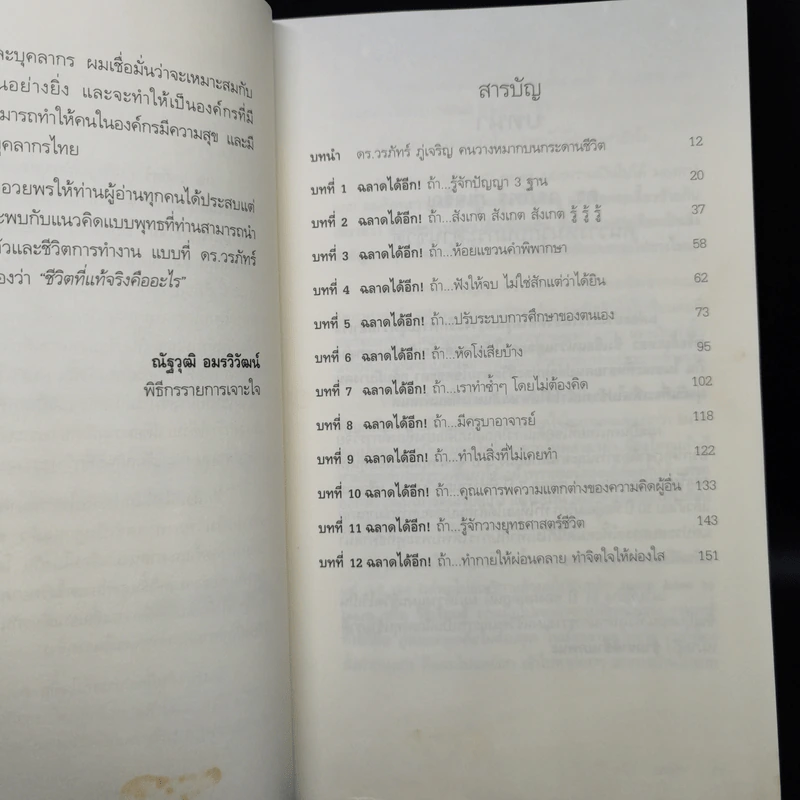 ละบุคลากร ผมเชื่อมั่นว่าจะเหมาะสมกับ
นอย่างยิ่ง และจะทำให้เป็นองค์กรที่มี
มารถทำให้คนในองค์กรมีความสุข และมี
ุคลากรไทย
อวยพรให้ท่านผู้อ่านทุกคนได้ประสบแต่
ะพบกับแนวคิดแบบพุทธที่ท่านสามารถนำ
ัวและชีวิตการทำงาน แบบที่ ดร.วรภัทร์
องว่า "ชีวิตที่แท้จริงคืออะไร"
ณัฐวุฒิ อมรวิวัฒน์
พิธีกรรายการเจาะใจ
สารบัญ
บทนำ ดร.วรภัทร์ ภู่เจริญ คนวางหมากบนกระดานชีวิต 12
บทที่ 1 ฉลาดได้อีก! ถ้า...รู้จักปัญญา 3 ฐาน 20
บทที่ 2 ฉลาดได้อีก! ถ้า...สังเกต สังเกต สังเกต รู้ รู้ รู้ 37
บทที่ 3 ฉลาดได้อีก! ถ้า...ห้อยแขวนคำพิพากษา 58
บทที่ 4 ฉลาดได้อีก! ถ้า...ฟังให้จบ ไม่ใช่สักแต่ว่าได้ยิน 62
บทที่ 5 ฉลาดได้อีก! ถ้า...ปรับระบบการศึกษาของตนเอง 73
บทที่ 6 ฉลาดได้อีก! ถ้า...หัดโง่เสียบ้าง 95
บทที่ 7 ฉลาดได้อีก! ถ้า...เราทำซ้ำๆ โดยไม่ต้องคิด 102
บทที่ 8 ฉลาดได้อีก! ถ้า...มีครูบาอาจารย์ 118
บทที่ 9 ฉลาดได้อีก! ถ้า...ทำในสิ่งที่ไม่เคยทำ 122
บทที่ 10 ฉลาดได้อีก! ถ้า...คุณเคารพความแตกต่างของความคิดผู้อื่น 133
บทที่ 11 ฉลาดได้อีก! ถ้า...รู้จักวางยุทธศาสตร์ชีวิต 143
บทที่ 12 ฉลาดได้อีก! ถ้า...ทำกายให้ผ่อนคลาย ทำจิตใจให้ผ่องใส 151